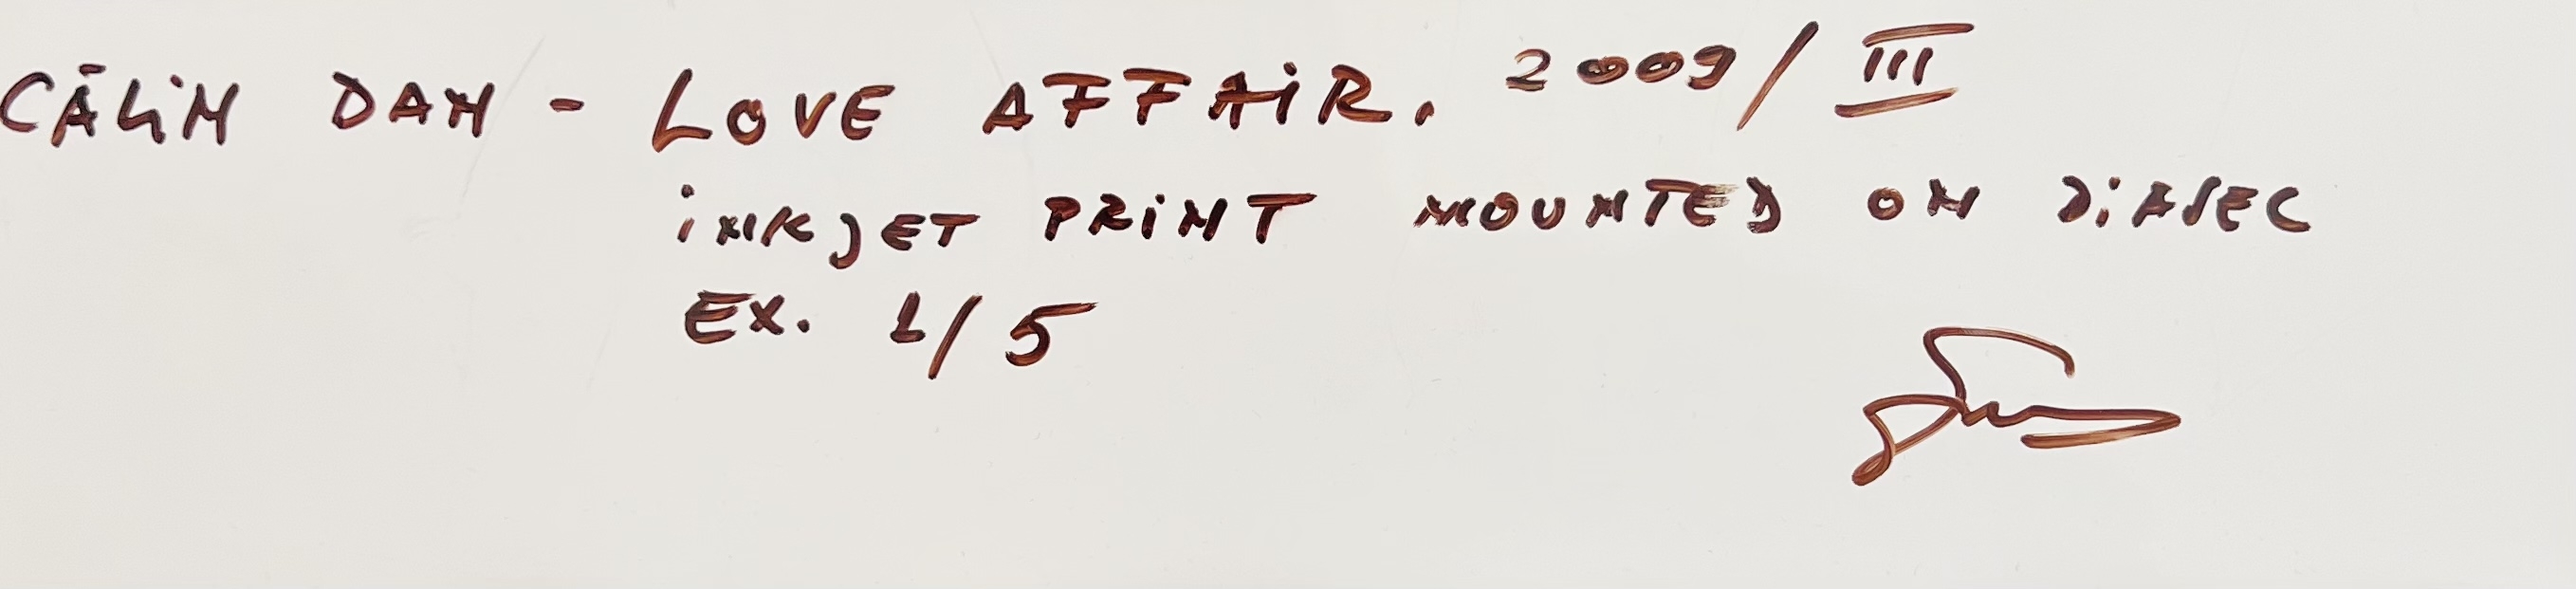 CĂLiN DAN - LOVE AFFAiR. 2009/III
iNKJET PRiNT MOUNTED ON DiASEC
EX. 1/5